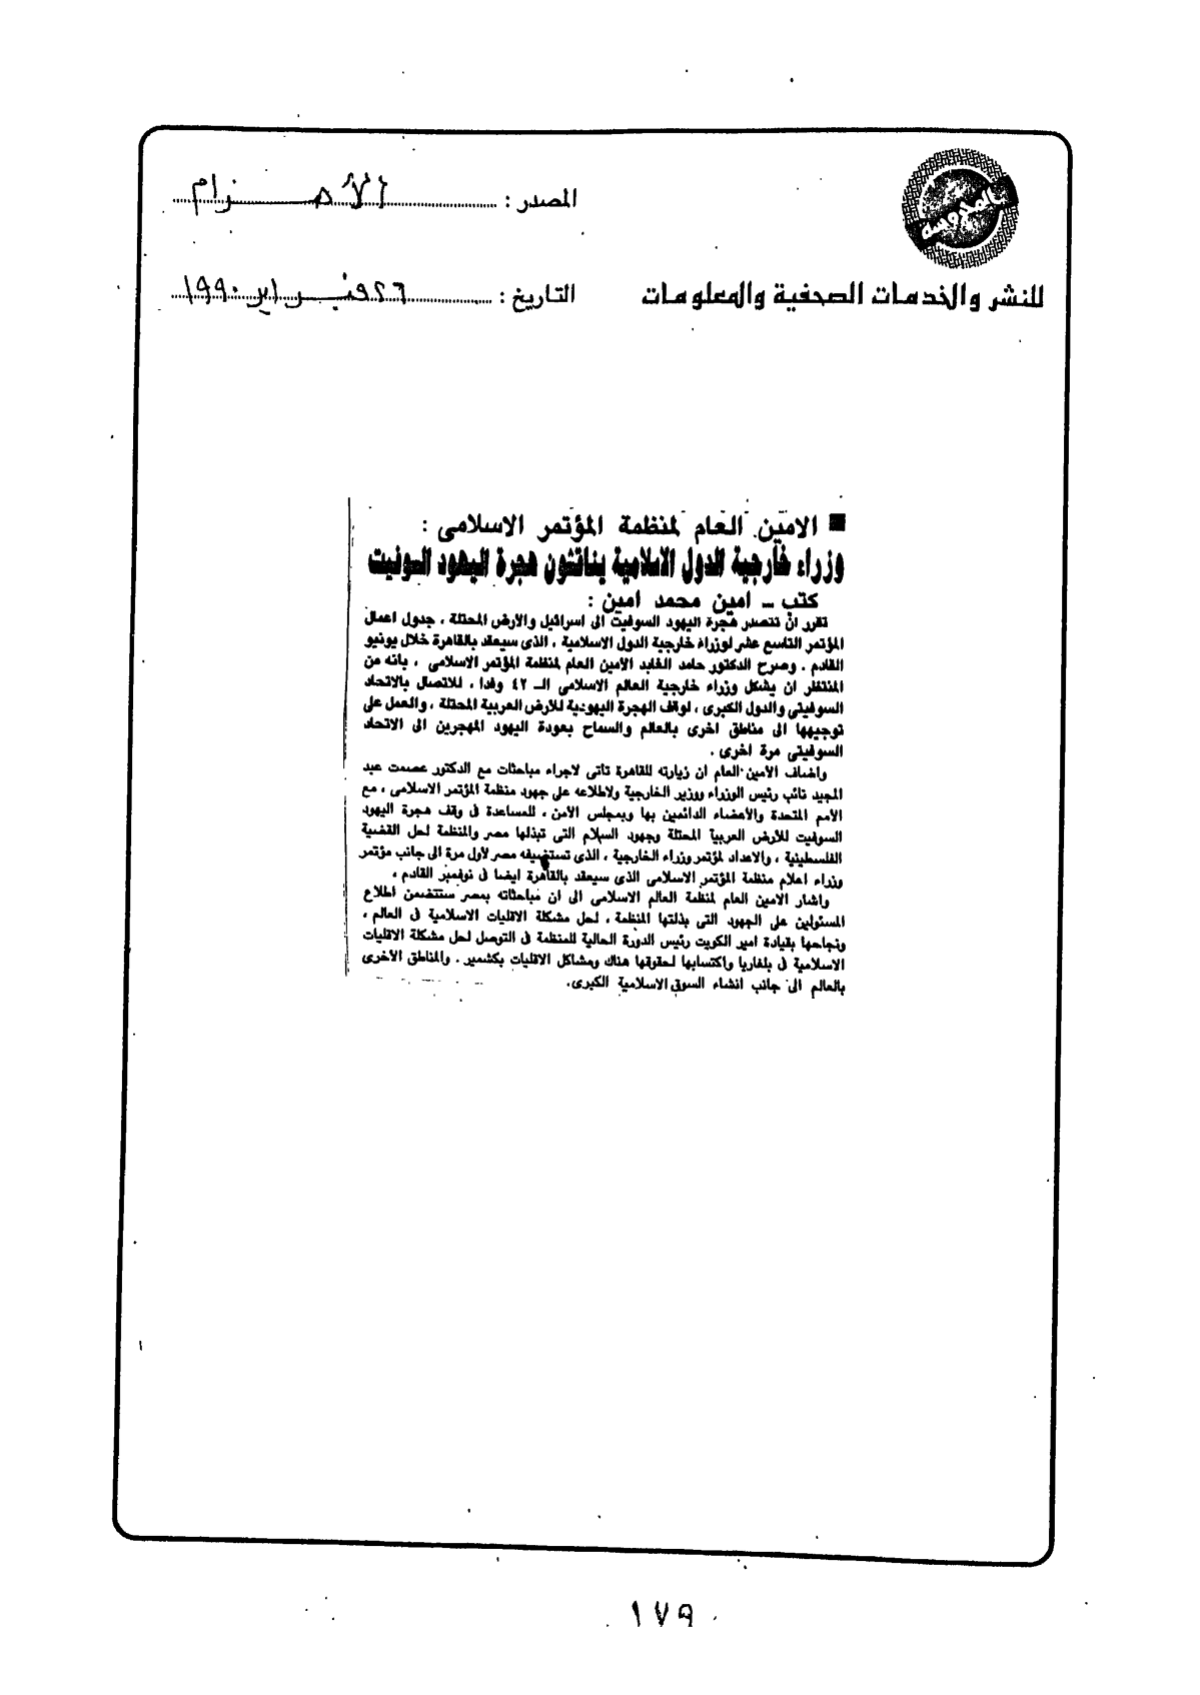 المدوسة
المصدر : الأهرام
للنشر والخدمات الصحفية والمعلومات
التاريخ : ٢٦ فبراير ١٩٩٠
■ الامين العام لمنظمة المؤتمر الاسلامى :
وزراء خارجية الدول الاسلامية يناقشون هجرة اليهود السوفيت
كتب ــ امين محمد امين :
تقرر ان تتصدر هجرة اليهود السوفيت الى اسرائيل والارض المحتلة ، جدول اعمال
المؤتمر التاسع عشر لوزراء خارجية الدول الاسلامية ، الذى سيعقد بالقاهرة خلال يونيو
القادم . وصرح الدكتور حامد الغابد الأمين العام لمنظمة المؤتمر الاسلامى ، بانه من
المنتظر ان يشكل وزراء خارجية العالم الاسلامى الـ ٤٢ وفدا ، للاتصال بالاتحاد
السوفيتى والدول الكبرى ، لوقف الهجرة اليهودية للارض العربية المحتلة ، والعمل على
توجيهها الى مناطق اخرى بالعالم والسماح بعودة اليهود المهجرين الى الاتحاد
السوفيتى مرة اخرى .
واضاف الأمين العام ان زيارته للقاهرة تاتى لاجراء مباحثات مع الدكتور عصمت عبد
المجيد نائب رئيس الوزراء ووزير الخارجية ولاطلاعه على جهود منظمة المؤتمر الاسلامى ، مع
الأمم المتحدة والأعضاء الدائمين بها وبمجلس الأمن ، للمساعدة فى وقف هجرة اليهود
السوفيت للارض العربية المحتلة وجهود السلام التى تبذلها مصر والمنظمة لحل القضية
الفلسطينية ، والاعداد لمؤتمر وزراء الخارجية ، الذى تستضيفه مصر لاول مرة الى جانب مؤتمر
وزراء اعلام منظمة المؤتمر الاسلامى الذى سيعقد بالقاهرة ايضا فى نوفمبر القادم .
واشار الامين العام لمنظمة العالم الاسلامى الى ان مباحثاته بمصر ستتضمن اطلاع
المسئولين على الجهود التى بذلتها المنظمة ، لحل مشكلة الاقليات الاسلامية فى العالم ،
ونجاحها بقيادة امير الكويت رئيس الدورة الحالية للمنظمة فى التوصل لحل مشكلة الاقليات
الاسلامية فى بلغاريا واكتسابها لحقوقها هناك ومشاكل الاقليات بكشمير . والمناطق الاخرى
بالعالم الى جانب انشاء السوق الاسلامية الكبرى .
١٧٩